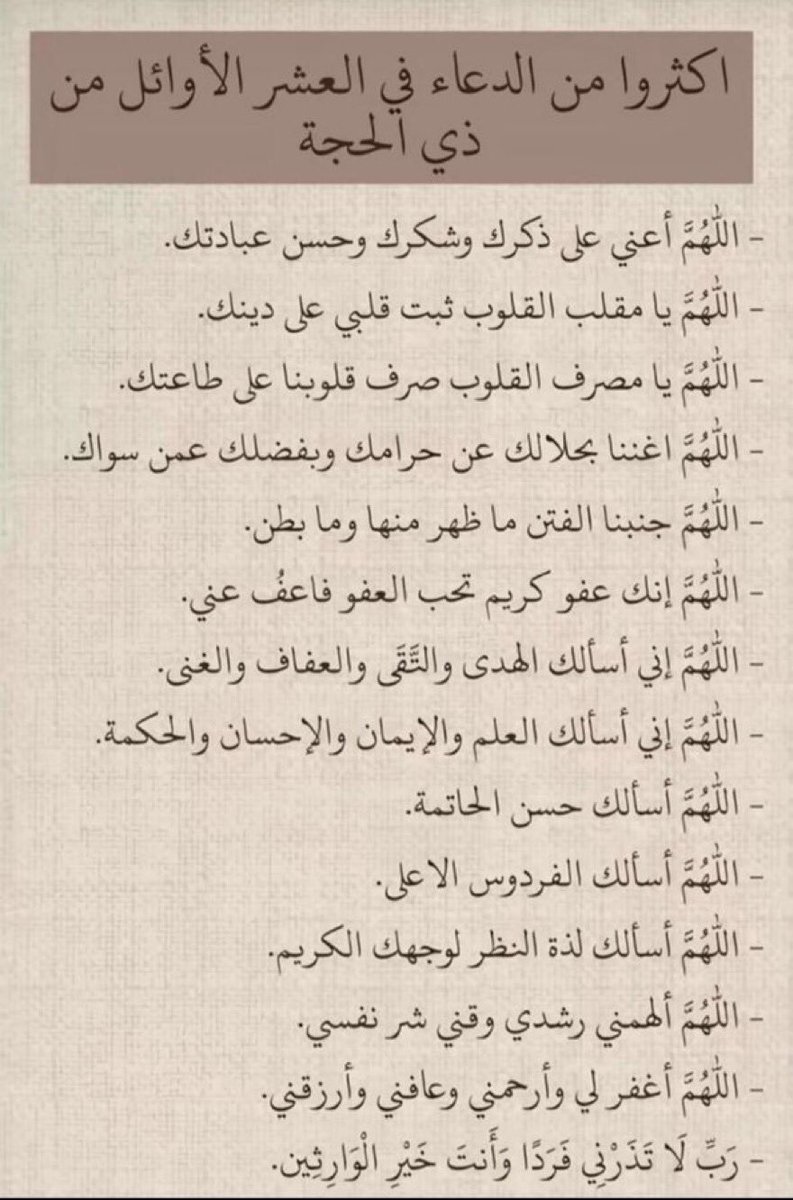 اكثروا من الدعاء في العشر الأوائل من
ذي الحجة
- اللَّهُمَّ أعني على ذكرك وشكرك وحسن عبادتك.
- اللَّهُمَّ يا مقلب القلوب ثبت قلبي على دينك.
- اللَّهُمَّ يا مصرف القلوب صرف قلوبنا على طاعتك.
- اللَّهُمَّ اغننا بحلالك عن حرامك وبفضلك عمن سواك.
- اللَّهُمَّ جنبنا الفتن ما ظهر منها وما بطن.
- اللَّهُمَّ إنك عفو كريم تحب العفو فاعفُ عني.
- اللَّهُمَّ إني أسألك الهدى والتَّقَى والعفاف والغنى.
- اللَّهُمَّ إني أسألك العلم والإيمان والإحسان والحكمة.
- اللَّهُمَّ أسألك حسن الخاتمة.
- اللَّهُمَّ أسألك الفردوس الاعلى.
- اللَّهُمَّ أسألك لذة النظر لوجهك الكريم.
- اللَّهُمَّ ألهمني رشدي وقني شر نفسي.
- اللَّهُمَّ أغفر لي وأرحمني وعافني وأرزقني.
- رَبِّ لَا تَذَرْنِي فَرَدًا وَأَنتَ خَيْرِ الْوَارِثِين.